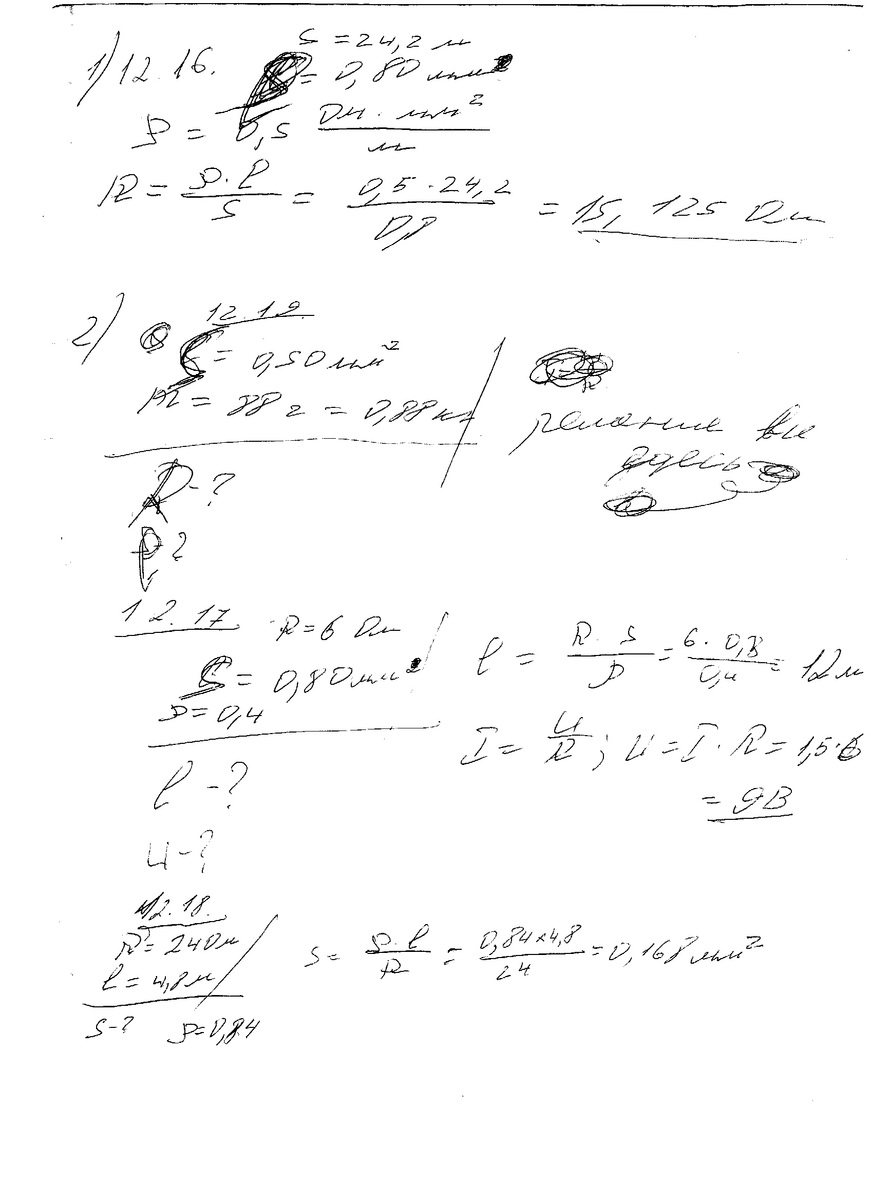 1) 12.16. S = 24,2 м
= 0,80 мм²
ρ = 0,5 Ом · мм² / м
R = ρ·l / S = 0,5 · 24,2 / 0,8 = 15,125 Ом
2) 12.19.
S = 0,50 мм²
m = 88 г = 0,88 кг
решение вы
здесь
R - ?
l - ?
12.17 R = 6 Ом
S = 0,80 мм²
ρ = 0,4
l = R · S / ρ = 6 · 0,8 / 0,4 = 12 м
I = U / R ; U = I · R = 1,5 · 6
= 9В
l - ?
U - ?
12.18.
R = 24 Ом
l = 4,8 м
S = ρ·l / R = 0,84 × 4,8 / 24 = 0,168 мм²
S - ? ρ = 0,84